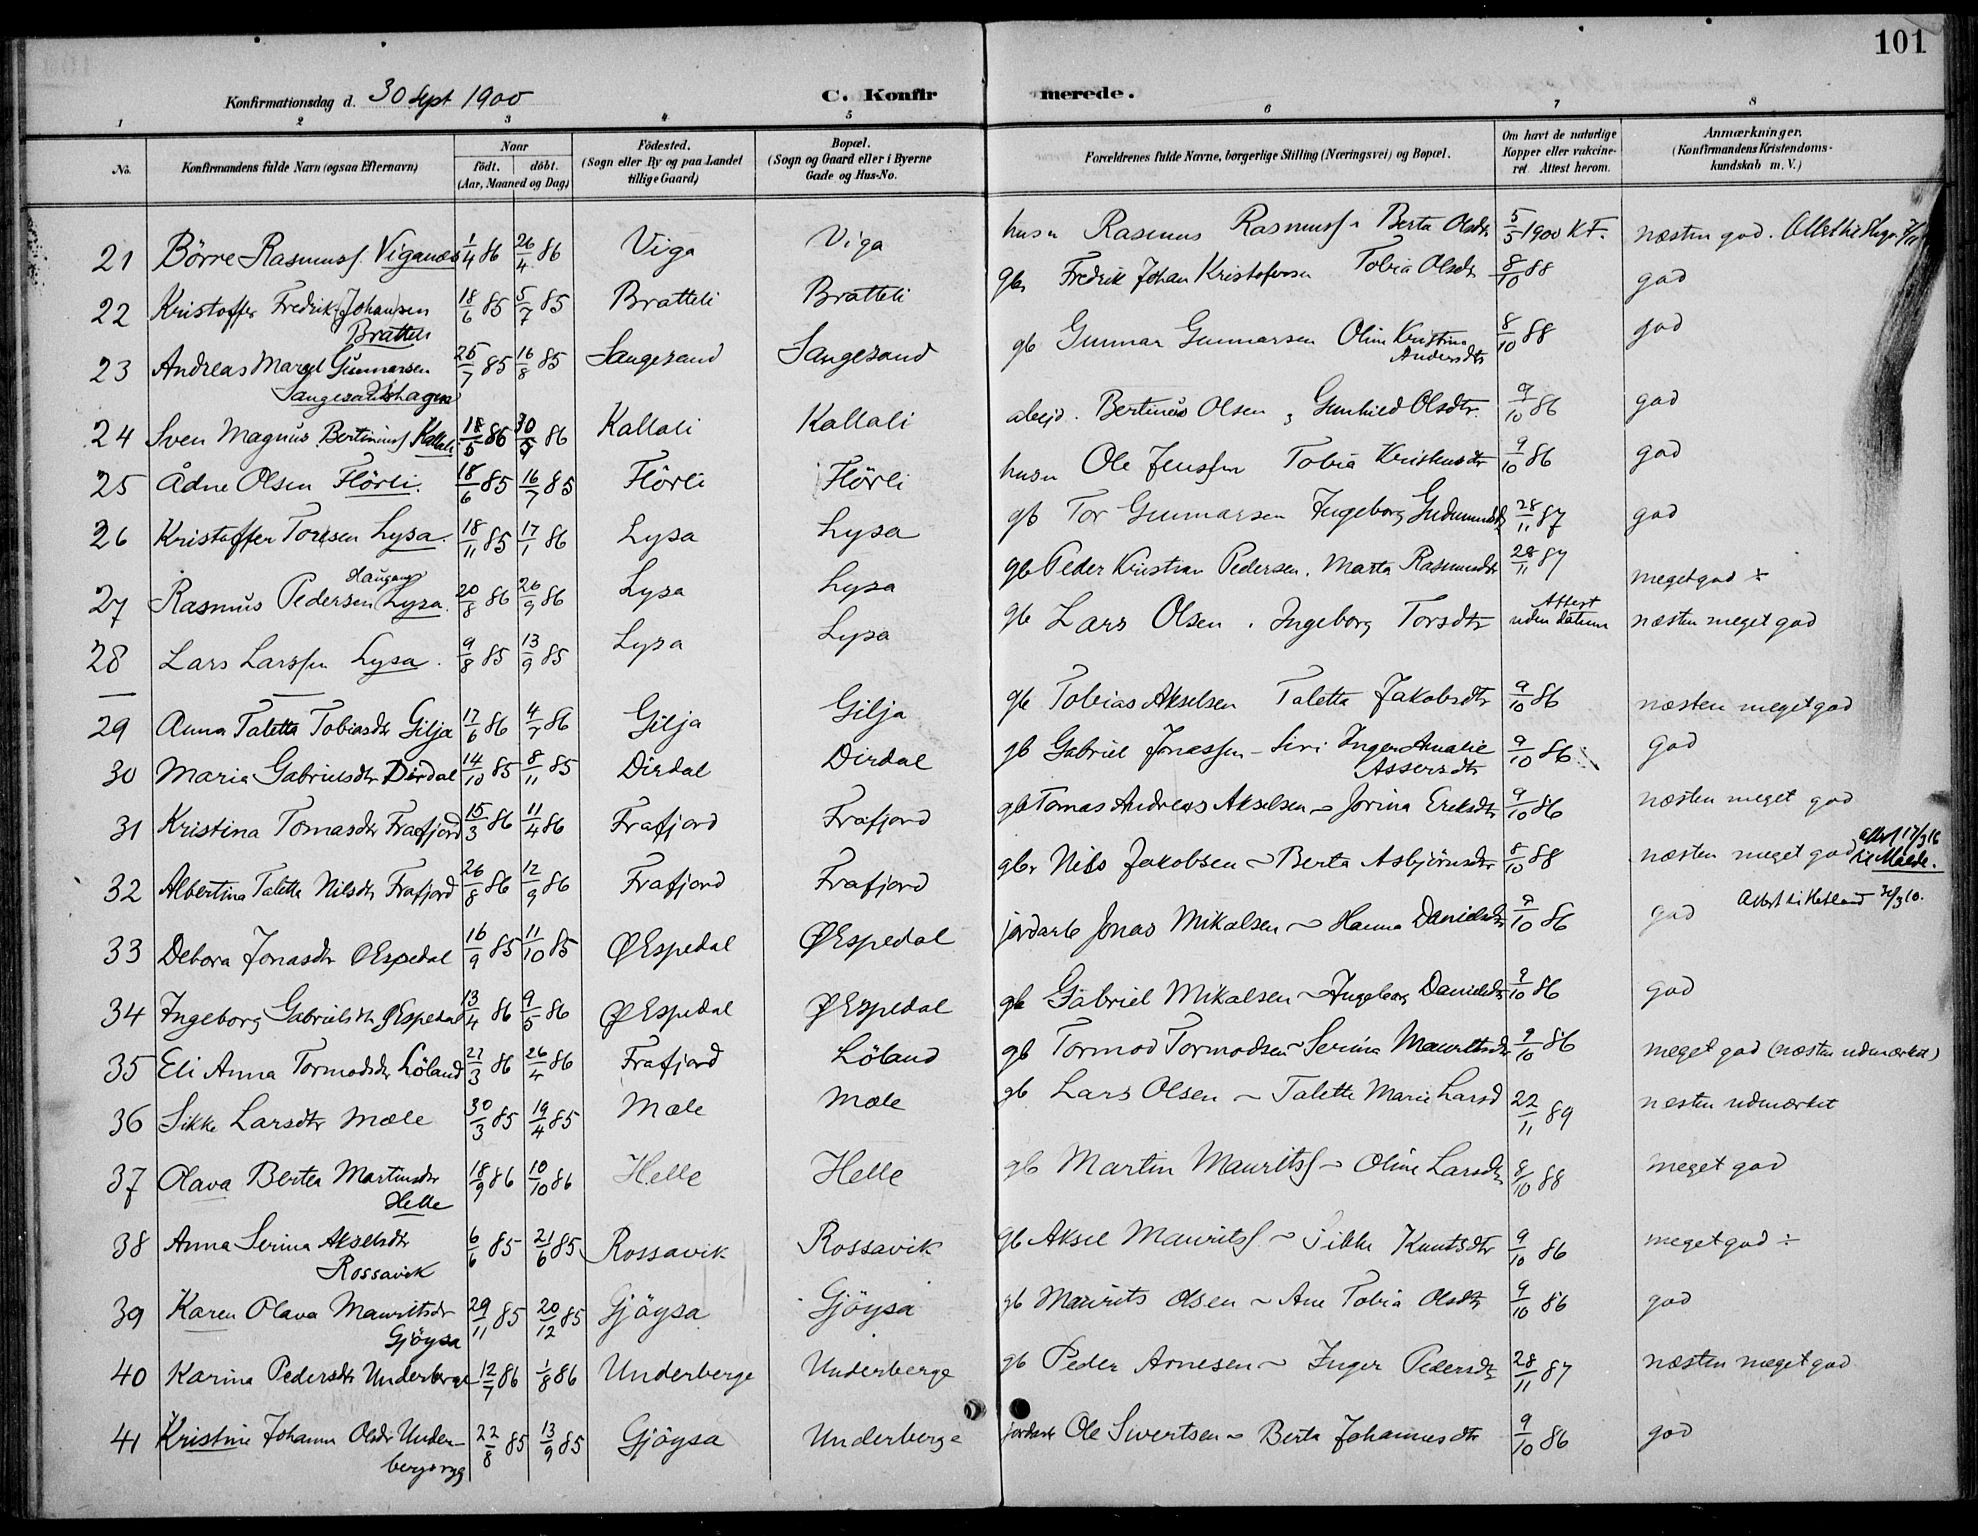 101
Konfirmationsdag d. 30 Sept 1900 C. Konfir merede.
1 2 3 4 5 6 7 8
No. Konfirmandens fulde Navn (ogsaa Efternavn) Naar født. døbt. (Aar, Maaned og Dag) Födested. (Sogn eller By og paa Landet tillige Gaard) Bopæl. (Sogn og Gaard eller i Byerne Gade og Hus-No. Forældrenes fulde Navne, borgerlige Stilling (Næringsvei) og Bopæl. Om havt de naturlige Kopper eller vakcineret Attest herom. Anmærkninger. (Konfirmandens Kristendomskundskab m. V.)
21 Börre Rasmuss. Viganæs 1/4 86 26/4 86 Viga Viga husm Rasmus Rasmuss. Berta Olsdtr 5/5 1900 KF. næsten god.
22 Kristoffer Fredrik Johansen Bratteli 18/6 85 5/7 85 Bratteli Bratteli gbr Fredrik Johan Kristofersen Tobia Olsdtr 8/10 88 god
23 Andreas Margel Gunnarsen Sangesand 25/7 85 16/8 85 Sangesand Sangesand gb Gunnar Gunnarsen Oline Kristine Andersdtr 8/10 88 god
24 Sven Magnus Bertiniuss Kallali 18/5 86 30/5 86 Kallali Kallali abejd. Bertinius Olsen, Gunhild Olsdtr. 9/10 86 god
25 Ådne Olsen Flörli. 18/6 85 16/7 85 Flörli Flörli husm Ole Jenssen Tobia Kristensdtr 9/10 86 god
26 Kristoffer Torsen Lysa. 18/11 85 17/1 86 Lysa Lysa gb Tor Gunnarsen Ingeborg Gudmundsdtr 28/11 87 god
27 Rasmus Pedersen Haugang Lysa. 20/8 86 26/9 86 Lysa Lysa gb Peder Kristian Pedersen. Marta Rasmusdtr 28/11 87 meget god ÷
28 Lars Larssen Lysa. 9/8 85 13/9 85 Lysa Lysa gb Lars Olsen. Ingeborg Torsdtr Attest uden datum næsten meget god
29 Anna Taletta Tobiasdtr Gilja 17/6 86 4/7 86 Gilja Gilja gb Tobias Akselsen Taletta Jakobsdtr 9/10 86 næsten meget god
30 Maria Gabrielsdtr Dirdal 14/10 85 8/11 85 Dirdal Dirdal gb Gabriel Jonassen - Siri Inger Amalie Assersdtr 9/10 86 god
31 Kristina Tomasdtr Frafjord 15/3 86 11/4 86 Frafjord Frafjord gb Tomas Andreas Akselsen ~ Jorina Eriksdtr 9/10 86 næsten meget god
32 Albertina Taletta Nilsdtr Frafjord 26/8 86 12/9 86 Frafjord Frafjord gbr Nils Jakobsen ~ Berta Asbjörnsdtr 8/10 88 næsten meget god Attest 17/3 16 til Molde.
33 Debora Jonasdtr ØEspedal 16/9 85 11/10 85 ØEspedal ØEspedal jordarb Jonas Mikalsen ~ Hanna Danielsdtr 9/10 86 god Attest til Hetland
34 Ingeborg Gabrielsdtr ØEspedal 13/4 86 9/5 86 ØEspedal ØEspedal gb Gabriel Mikalsen ~ Ingeborg Danielsdtr 9/10 86 god
35 Eli Anna Tormodsdtr Löland 27/3 86 26/4 86 Frafjord Löland gb Tormod Tormodsen ~ Serina Mauritsdtr 9/10 86 meget god (næsten udmærket)
36 Sikke Larsdtr Mæle 30/3 85 19/4 85 Mæle Mæle gb Lars Olsen ~ Talette Marie Larsd 22/11 89 næsten udmærket
37 Olava Bertea Martinsdtr Helle 18/9 86 10/10 86 Helle Helle gb Martin Mauritss ~ Oline Larsdtr 8/10 88 meget god
38 Anna Serina Akselsdtr Rossavik 6/6 85 21/6 85 Rossavik Rossavik gb Aksel Mauritss ~ Sikke Knutsdtr 9/10 86 meget god ÷
39 Karen Olava Mauritsdtr Gjöysa 29/11 85 20/12 85 Gjöysa Gjöysa gb Maurits Olsen ~ Ane Tobia Olsdtr 9/10 86 god
40 Karina Pedersdtr Underberge 12/7 86 1/8 86 Underberge Underberge gb Peder Arnesen ~ Inger Pedersdtr 28/11 87 næsten meget god
41 Kristine Johanne Olsdtr Underbergsryg 22/8 85 13/9 85 Gjöysa Underberge jordarb Ole Sivertsen ~ Berta Johannesdtr 9/10 86 god